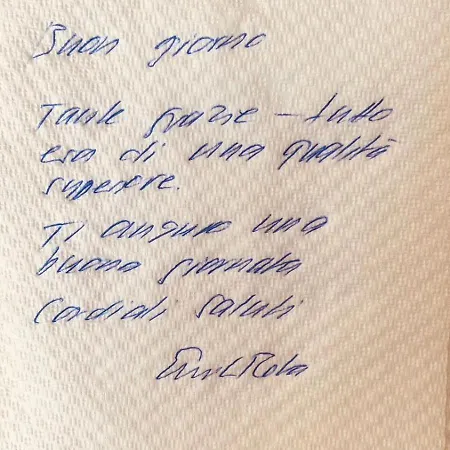 Buon giorno
Tante grazie – tutto
era di una qualità
superiore.
Ti auguro una
buona giornata
Cordiali saluti